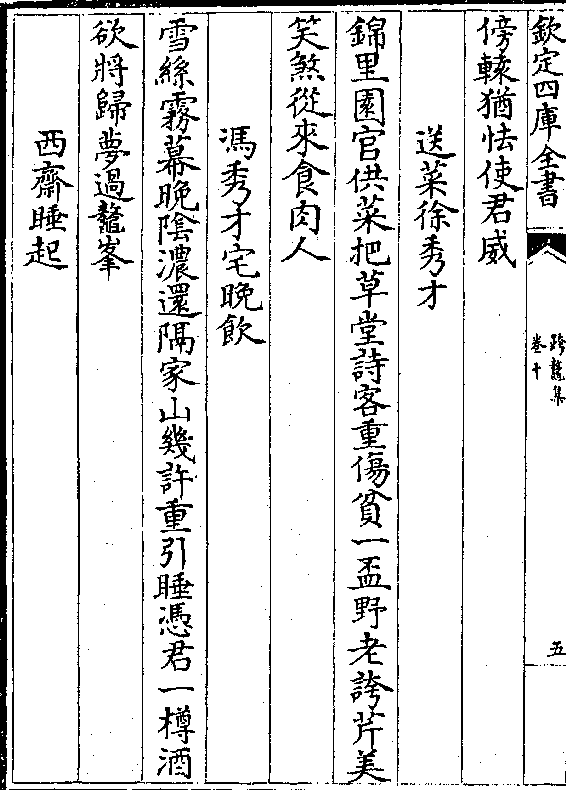 欽定四庫全書
跨鼇集
卷十
五
傍轅猶怯使君威
送菜徐秀才
錦里園官供菜把草堂詩客重傷貧一盃野老誇芹美
笑煞從來食肉人
馮秀才宅晚飲
雪絲霧幕晚陰濃還隔家山幾許重引睡憑君一樽酒
欲將歸夢過鼇峯
西齋睡起